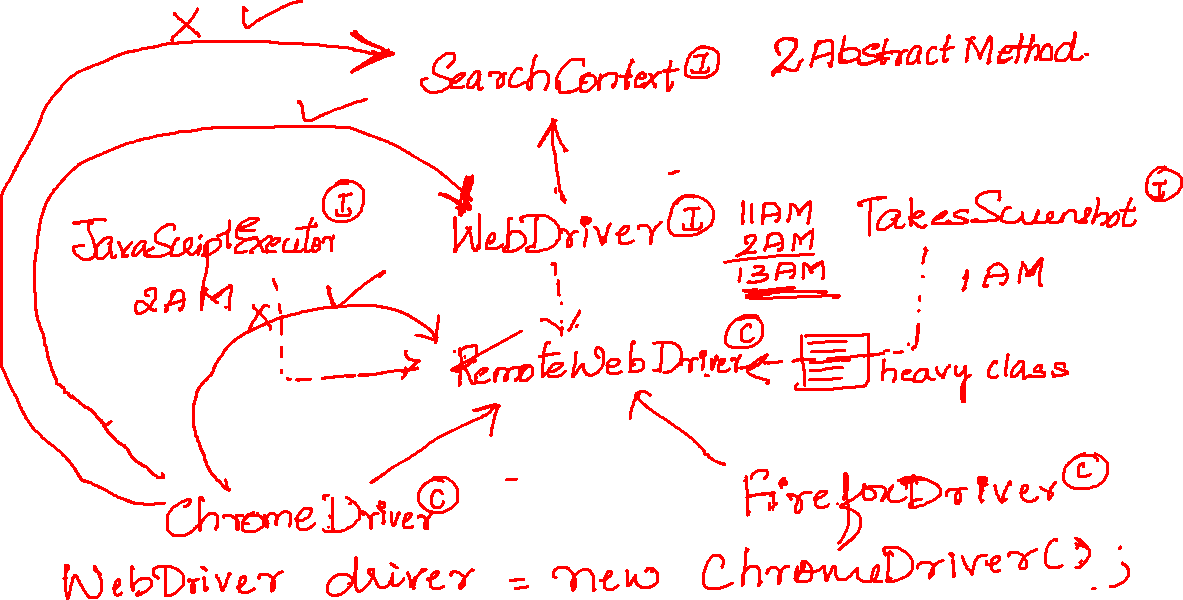 SearchContext I 2 Abstract Method.
JavaScriptExecutor I
2AM
WebDriver I
11AM
2AM
13AM
TakesScreenshot I
1AM
RemoteWebDriver C
heavy class
ChromeDriver C
FirefoxDriver C
WebDriver driver = new ChromeDriver();